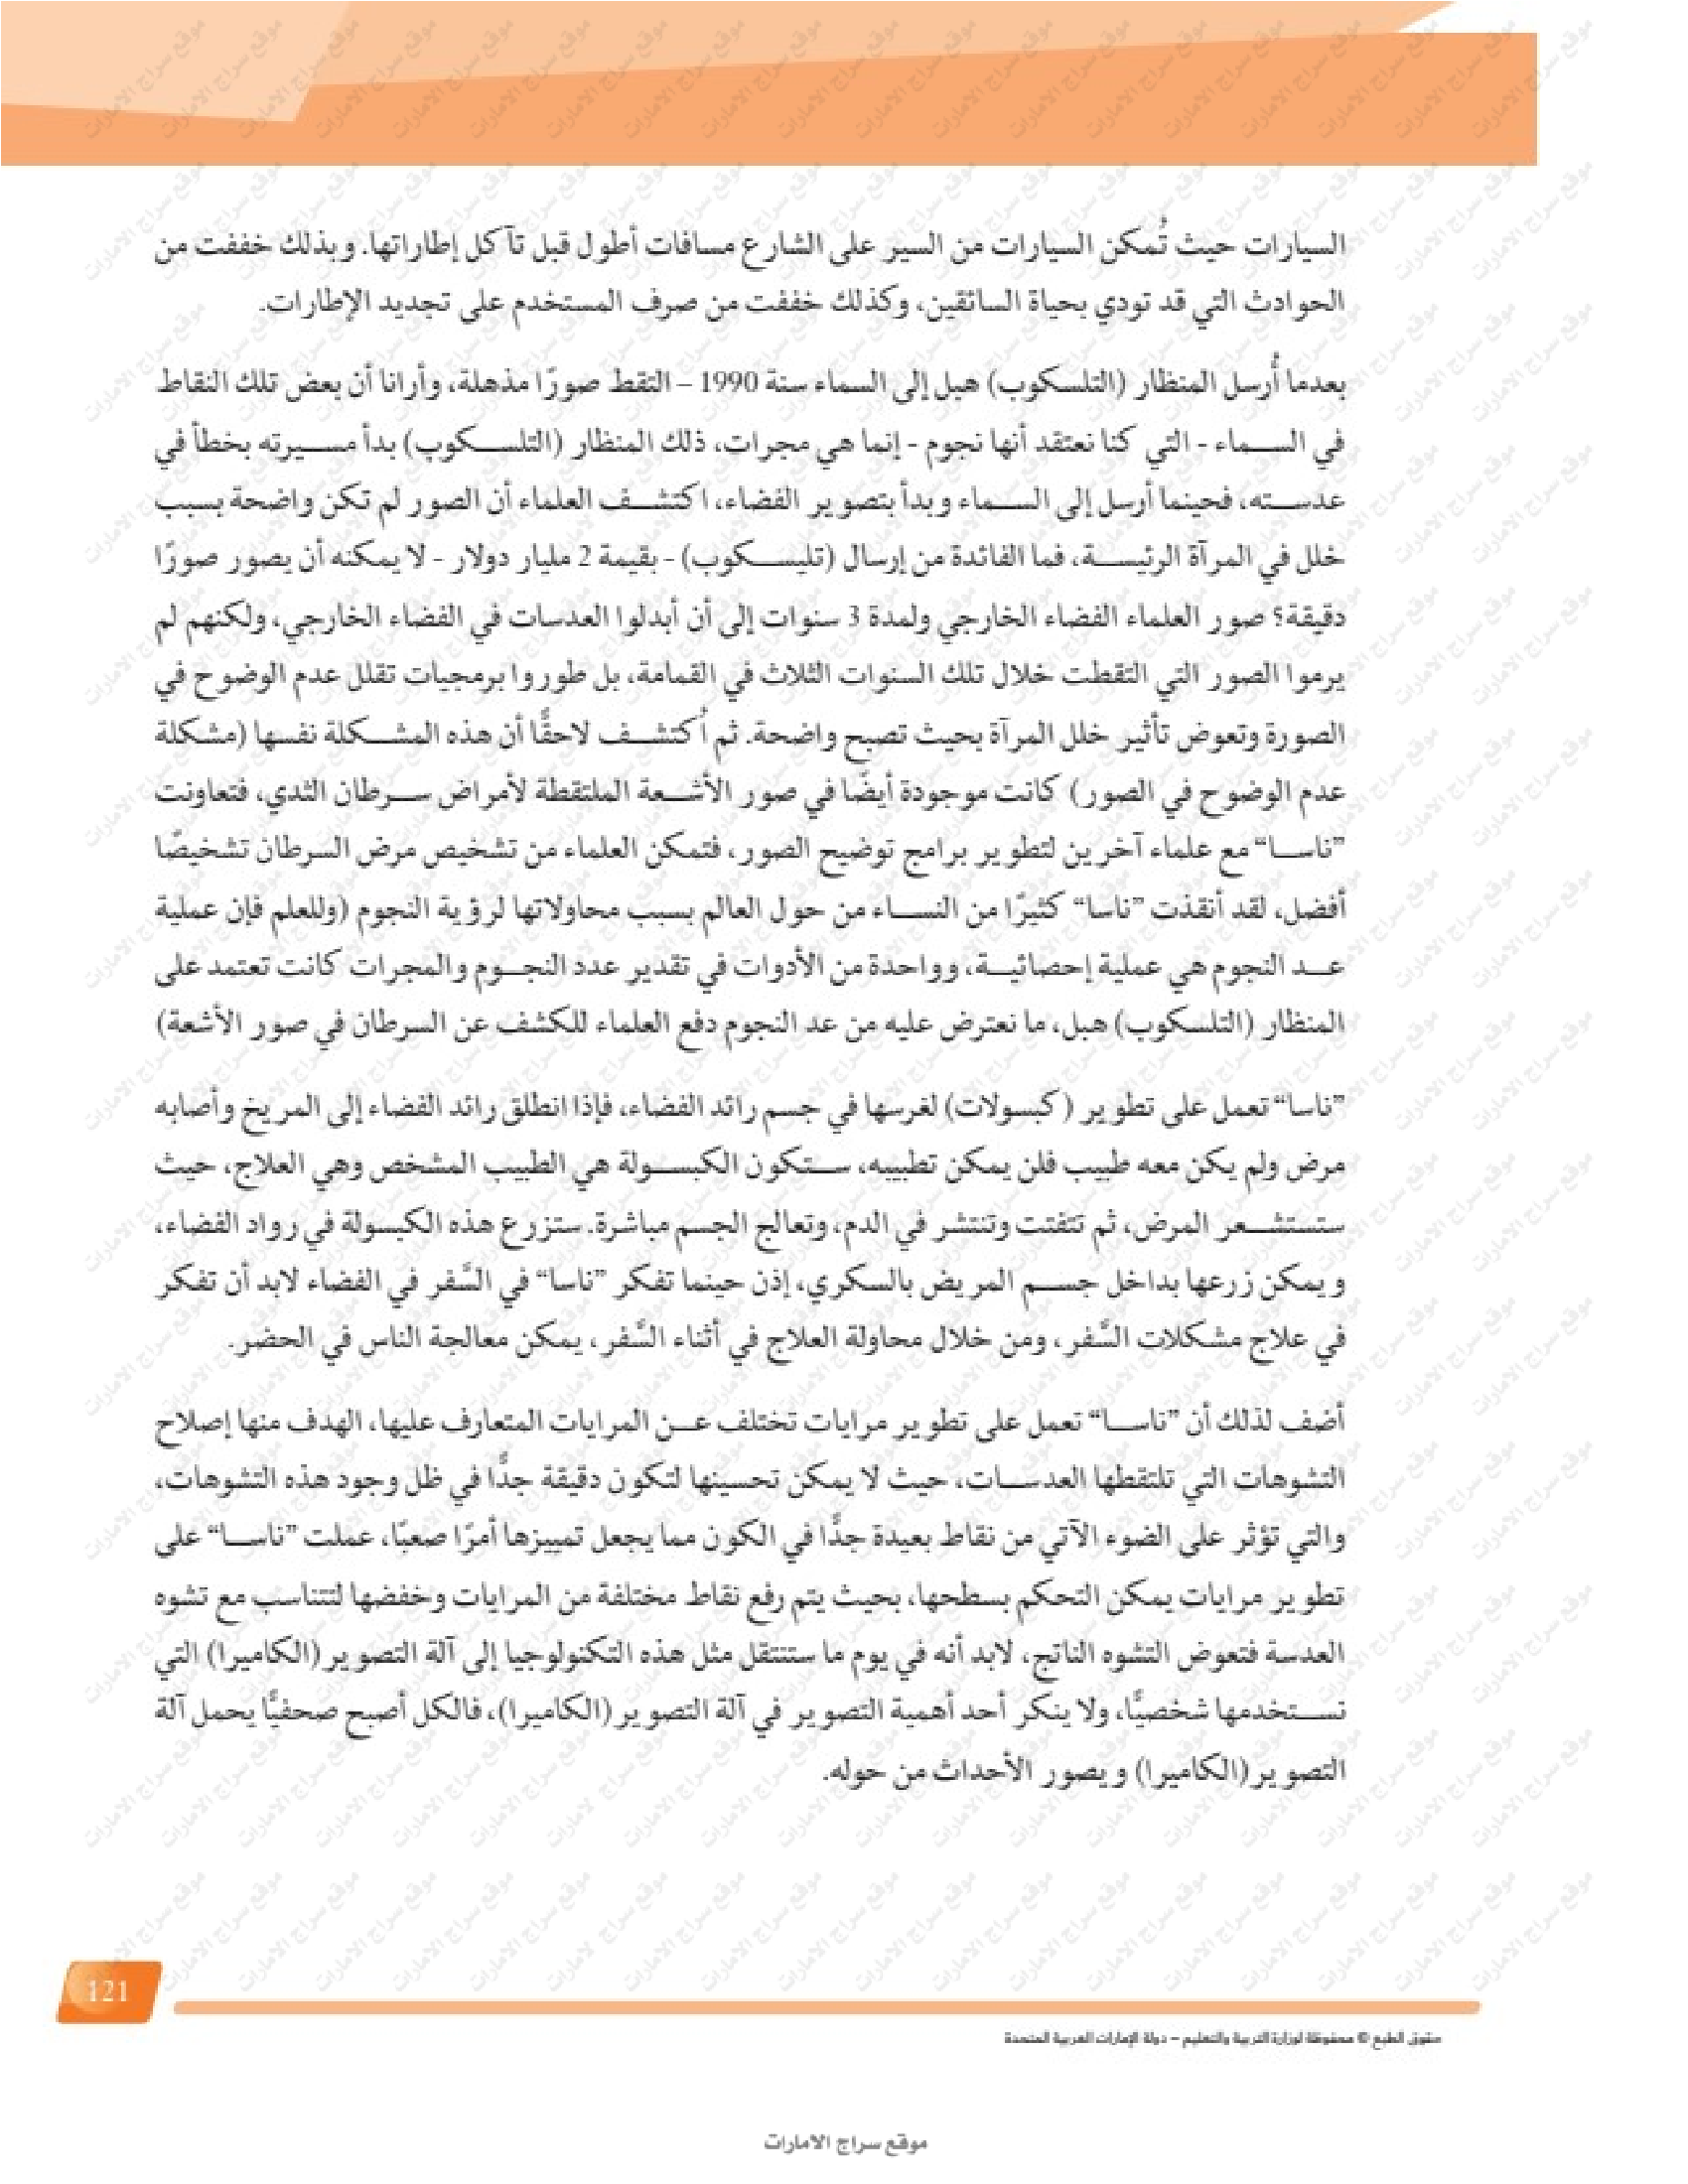 السيارات حيث تُمكن السيارات من السير على الشارع مسافات أطول قبل تآكل إطاراتها. وبذلك خففت من
الحوادث التي قد تودي بحياة السائقين، وكذلك خففت من صرف المستخدم على تجديد الإطارات.
بعدما أُرسل المنظار (التلسكوب) هبل إلى السماء سنة 1990 – التقط صورًا مذهلة، وأرانا أن بعض تلك النقاط
في السماء - التي كنا نعتقد أنها نجوم - إنما هي مجرات، ذلك المنظار (التلسكوب) بدأ مسيرته بخطأ في
عدسته، فحينما أرسل إلى السماء وبدأ بتصوير الفضاء، اكتشف العلماء أن الصور لم تكن واضحة بسبب
خلل في المرآة الرئيسة، فما الفائدة من إرسال (تليسكوب) - بقيمة 2 مليار دولار - لا يمكنه أن يصور صورًا
دقيقة؟ صور العلماء الفضاء الخارجي ولمدة 3 سنوات إلى أن أبدلوا العدسات في الفضاء الخارجي، ولكنهم لم
يرموا الصور التي التقطت خلال تلك السنوات الثلاث في القمامة، بل طوروا برمجيات تقلل عدم الوضوح في
الصورة وتعوض تأثير خلل المرآة بحيث تصبح واضحة. ثم اُكتشف لاحقًّا أن هذه المشكلة نفسها (مشكلة
عدم الوضوح في الصور) كانت موجودة أيضًا في صور الأشعة الملتقطة لأمراض سرطان الثدي، فتعاونت
”ناسا“ مع علماء آخرين لتطوير برامج توضيح الصور، فتمكن العلماء من تشخيص مرض السرطان تشخيصًا
أفضل، لقد أنقذت ”ناسا“ كثيرًا من النساء من حول العالم بسبب محاولاتها لرؤية النجوم (وللعلم فإن عملية
عد النجوم هي عملية إحصائية، وواحدة من الأدوات في تقدير عدد النجوم والمجرات كانت تعتمد على
المنظار (التلسكوب) هبل، ما نعترض عليه من عد النجوم دفع العلماء للكشف عن السرطان في صور الأشعة)
”ناسا“ تعمل على تطوير (كبسولات) لغرسها في جسم رائد الفضاء، فإذا انطلق رائد الفضاء إلى المريخ وأصابه
مرض ولم يكن معه طبيب فلن يمكن تطبيبه، ستكون الكبسولة هي الطبيب المشخص وهي العلاج، حيث
ستستشعر المرض، ثم تتفتت وتنتشر في الدم، وتعالج الجسم مباشرة. ستزرع هذه الكبسولة في رواد الفضاء،
ويمكن زرعها بداخل جسم المريض بالسكري، إذن حينما تفكر ”ناسا“ في السَّفر في الفضاء لابد أن تفكر
في علاج مشكلات السَّفر، ومن خلال محاولة العلاج في أثناء السَّفر، يمكن معالجة الناس في الحضر.
أضف لذلك أن ”ناسا“ تعمل على تطوير مرايات تختلف عن المرايات المتعارف عليها، الهدف منها إصلاح
التشوهات التي تلتقطها العدسات، حيث لا يمكن تحسينها لتكون دقيقة جدًّا في ظل وجود هذه التشوهات،
والتي تؤثر على الضوء الآتي من نقاط بعيدة جدًّا في الكون مما يجعل تمييزها أمرًا صعبًا، عملت ”ناسا“ على
تطوير مرايات يمكن التحكم بسطحها، بحيث يتم رفع نقاط مختلفة من المرايات وخفضها لتتناسب مع تشوه
العدسة فتعوض التشوه الناتج، لابد أنه في يوم ما ستنتقل مثل هذه التكنولوجيا إلى آلة التصوير (الكاميرا) التي
نستخدمها شخصيًّا، ولا ينكر أحد أهمية التصوير في آلة التصوير (الكاميرا)، فالكل أصبح صحفيًّا يحمل آلة
التصوير (الكاميرا) ويصور الأحداث من حوله.
121
حقوق الطبع © محفوظة لوزارة التربية والتعليم – دولة الإمارات العربية المتحدة
موقع سراج الامارات